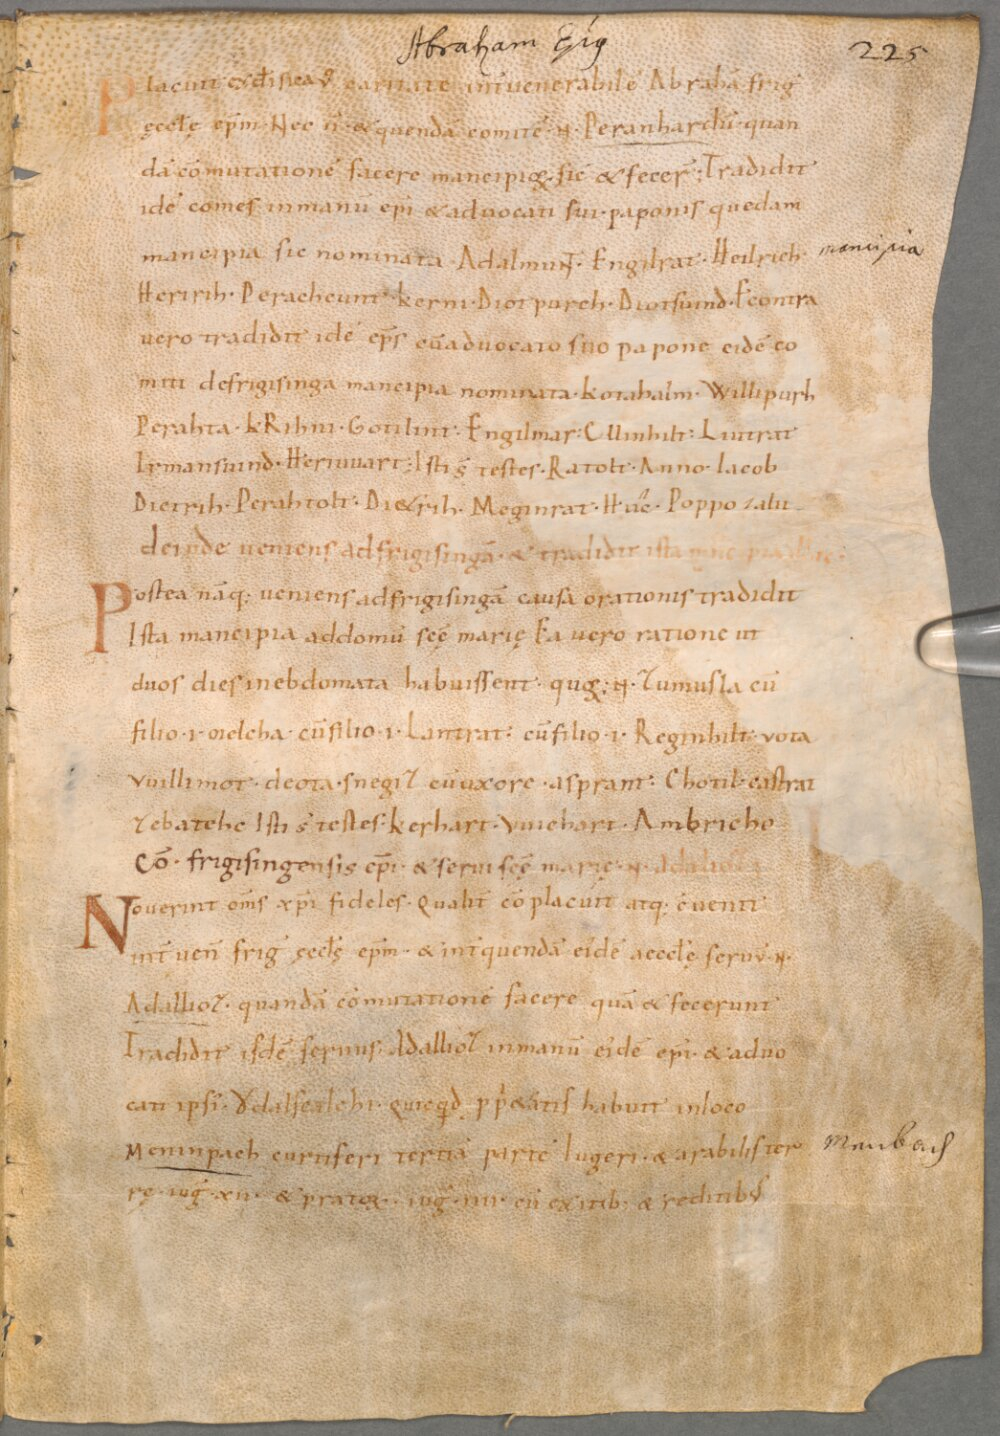 Abraham Eps
225
Placuit caritate int venerabilē Abrahā frig
ęcclę ep̄m. Nec ñ & quendā comitē N. Peranhardū quan
dā cōmutationē facere mancipioꝝ. sic & fecer̄. Tradidit
idē comes in manū ep̄i & advocati sui paponis quedam
mancipia sic nominata. Adalmunt. Engilrat. Heilrich.
mancipia
Heririh. Peracheunt. kerni. Diotpurch. Diotsuind. Econtra
vero tradidit idē ep̄s cū advocato suo papone eidē co
miti de frigisinga mancipia nominata. kotahalm. Willipurh
Perahta. kRihni. Gotilint. Engilmar. Cuinhilt. Liutrat
Irmansuind. Heriuuart. Isti s̄ testes. Ratolt. Anno. Iacob
Dietrih. Perahtolt. Di&rih. Meginrat. Hūc. Poppo
deinde veniens ad frigisingā. & tradidit ista
Postea nāq; veniens ad frigisingā causa orationis tradidit
Ista mancipia ad domū scē̄ marię Ea vero ratione ut
duos dies in ebdomata habuissent. N. cū
filio .i. oielcha. cū filio .i. Lantrat. cū filio .i. Reginhilt. vota
vuillimot. deota. snegil cū uxore. asprant. Chotil. castrat
Isti s̄ testes. kerhart. Vuichart. Ambricho
Cō. frigisingensis ep̄i. & servi scē̄ marię. N.
Noverint om̄s xp̄i fideles. Qualit̄ cōplacuit atq; cōvenit
int̄ ven̄ frig ęcclę ep̄m. & int̄ quendā eidē aecclę servū N.
Adalliol. quandā cōmutationē facere quā & fecerunt
Tradidit isdē servus Adalliol in manū eidē ep̄i. & advo
cati ipsi. Ŏdalscalchi. quicqd pp̄&atis habuit in loco
Meninpach curtiferi tertiā partē Iugeri. & arabilis ter
Menbach
rę. iuḡ .xii. & pratoꝝ. iuḡ .iiii. cū exitib; & reditibus